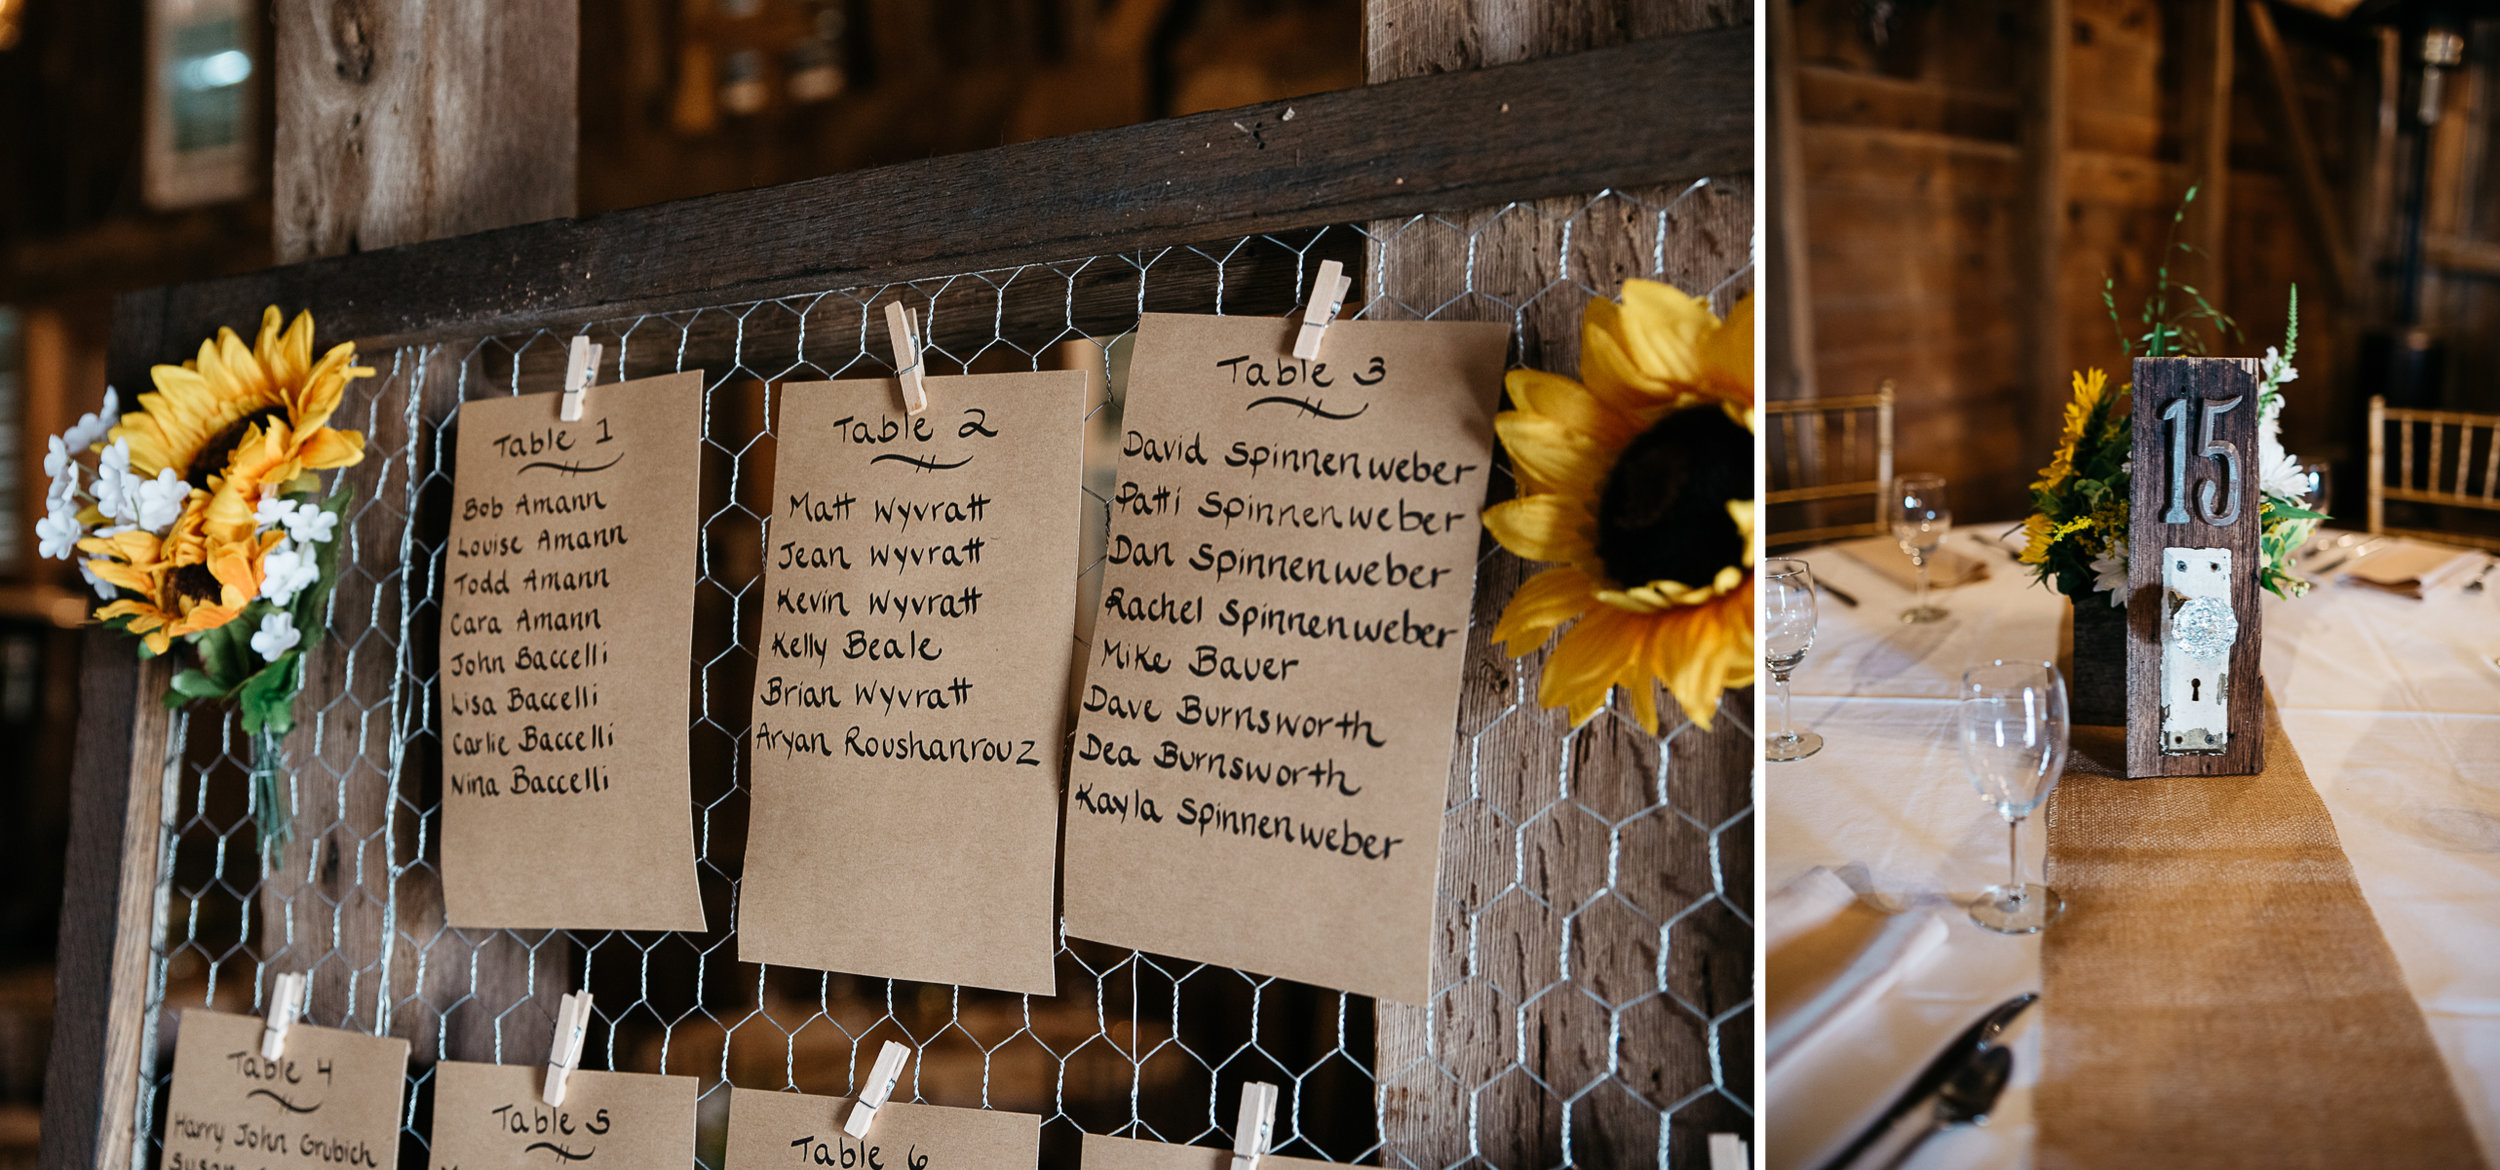 Table 1
Bob Amann
Louise Amann
Todd Amann
Cara Amann
John Baccelli
Lisa Baccelli
Carlie Baccelli
Nina Baccelli
Table 2
Matt Wyvratt
Jean Wyvratt
Kevin Wyvratt
Kelly Beale
Brian Wyvratt
Aryan Roushanrouz
Table 3
David Spinnenweber
Patti Spinnenweber
Dan Spinnenweber
Rachel Spinnenweber
Mike Bauer
Dave Burnsworth
Dea Burnsworth
Kayla Spinnenweber
Table 4
Harry John Grubich
Susan
Table 5
Table 6
15